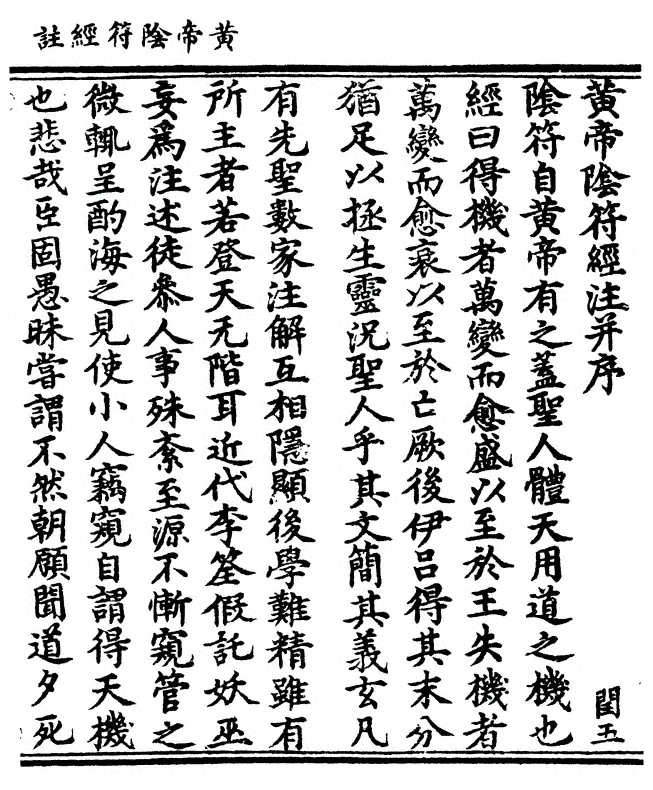 黃帝陰符經註
黃帝陰符經注并序
閏五
陰符自黃帝有之蓋聖人體天用道之機也
經曰得機者萬變而愈盛以至於王失機者
萬變而愈衰以至於亡厥後伊吕得其末分
猶足以拯生靈況聖人乎其文簡其義玄凡
有先聖數家注解互相隱顯後學難精雖有
所主者若登天无階耳近代李筌假託妖巫
妄爲注述徒叅人事殊紊至源不慚窺管之
微輒呈酌海之見使小人竊窺自謂得天機
也悲哉臣固愚昧嘗謂不然朝願聞道夕死